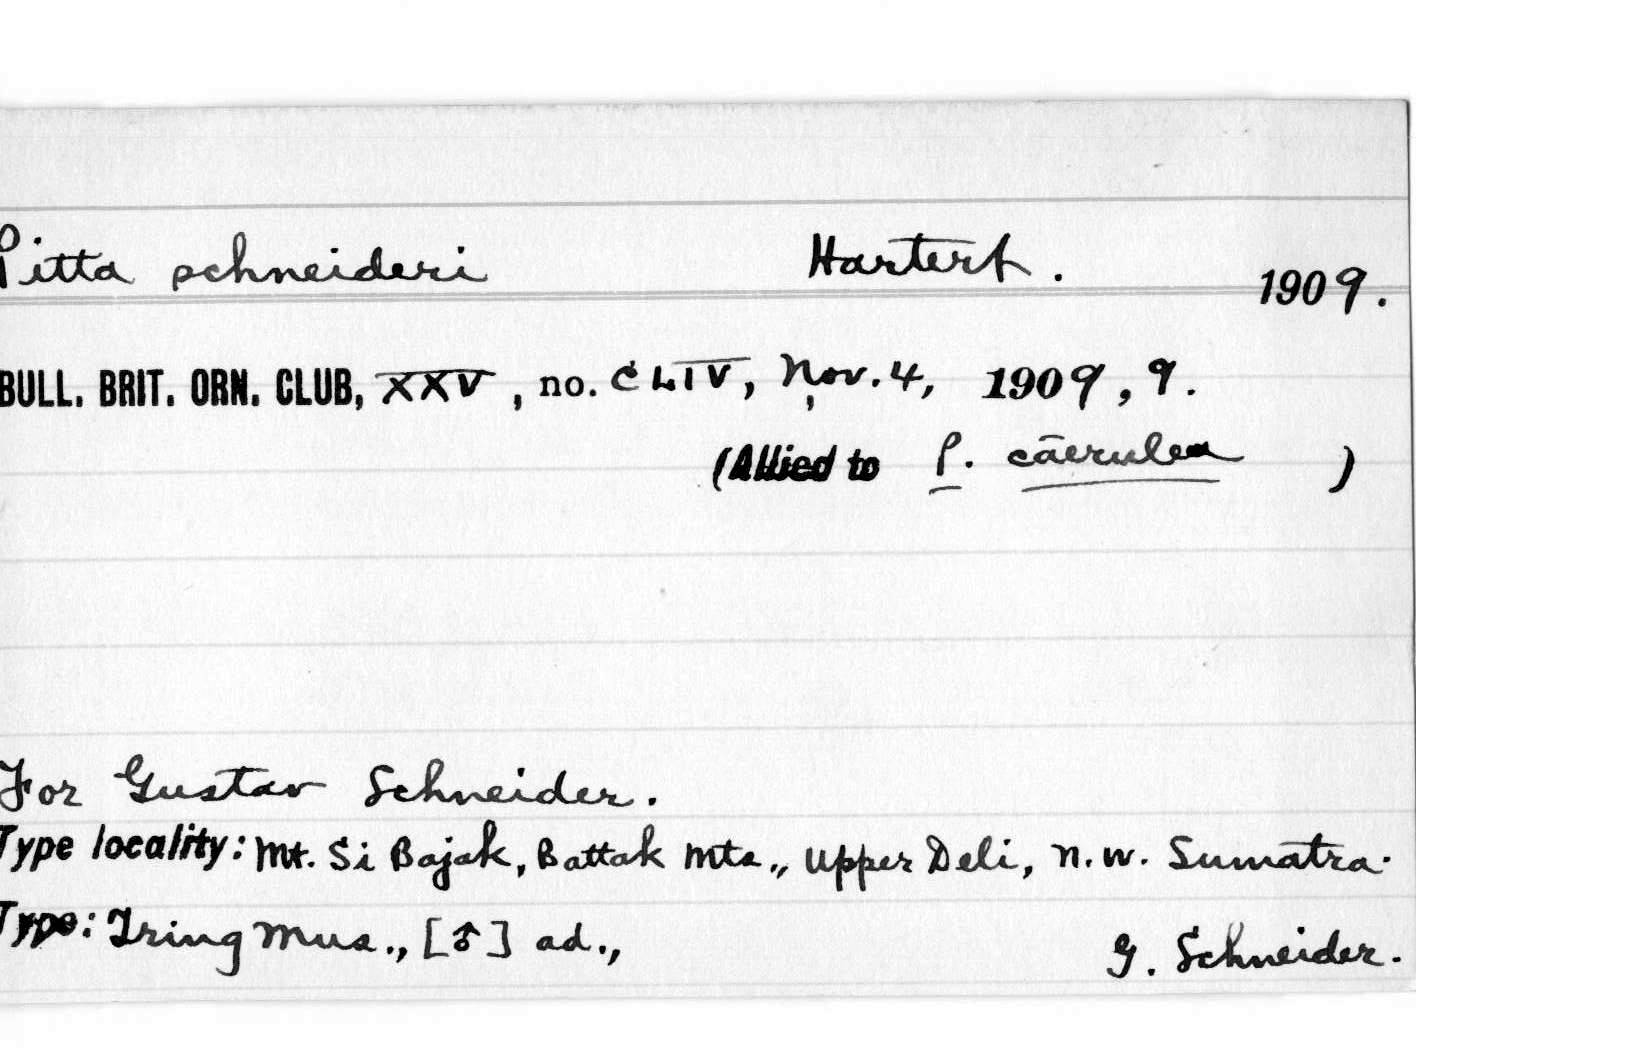 Pitta schneideri Hartert. 1909.
BULL. BRIT. ORN. CLUB, XXV, no. CLIV, Nov. 4, 1909, 9.
(Allied to P. cāerulea )
For Gustav Schneider.
Type locality: Mt. Si Bajak, Battak Mts., Upper Deli, N.W. Sumatra.
Type: Tring Mus., [♂] ad., G. Schneider.